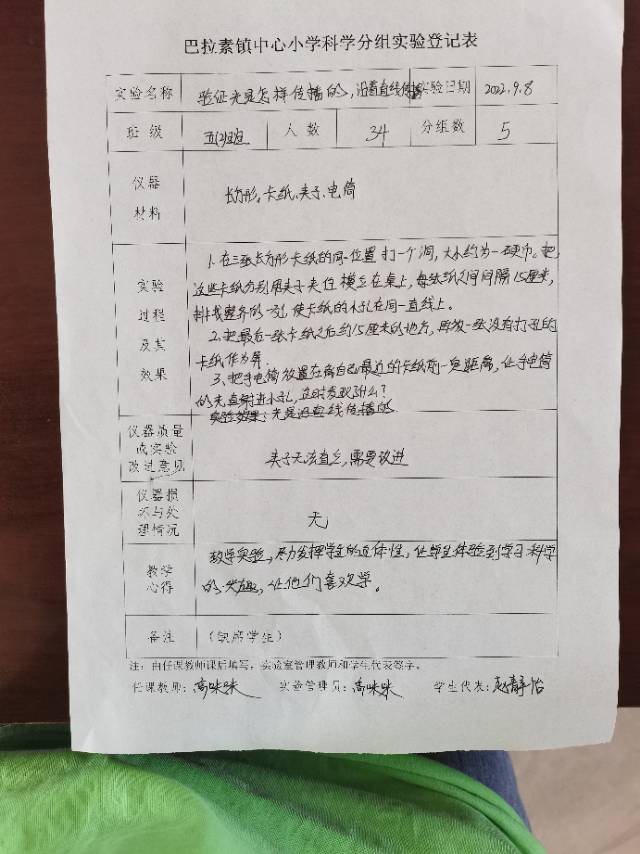 巴拉素镇中心小学科学分组实验登记表
实验名称 验证光是怎样传播的,沿着直线传播 实验日期 2022.9.8
班级 五(2)班 人数 34 分组数 5
仪器
材料
长方形、卡纸、夹子、电筒
实验
过程
及其
效果
1、在三张长方形卡纸的同一位置打一个洞,大小约为一硬币。把
这些卡纸分别用夹子夹住横立在桌上,每张纸之间间隔15厘米,
排成整齐的一列,使卡纸的小孔在同一直线上。
2、把最后一张卡纸之后约15厘米的地方,再放一张没有打孔的
卡纸作为屏。
3、把手电筒放置在离自己最近的卡纸前一定距离,让手电筒
的光直射进小孔,这时发现了什么?
实验效果:光是沿直线传播的
仪器质量
或实验
改进意见
夹子无法直立,需要改进
仪器损
坏与处
理情况
无
教学
心得
教学实验,尽力发挥学生的主体性,让学生体验到学习科学
的乐趣,让他们喜欢学。
备注 (缺席学生)
注:由任课教师课后填写,实验室管理教师和学生代表签字。
任课教师:高咪咪 实验管理员:高咪咪 学生代表:赵静怡